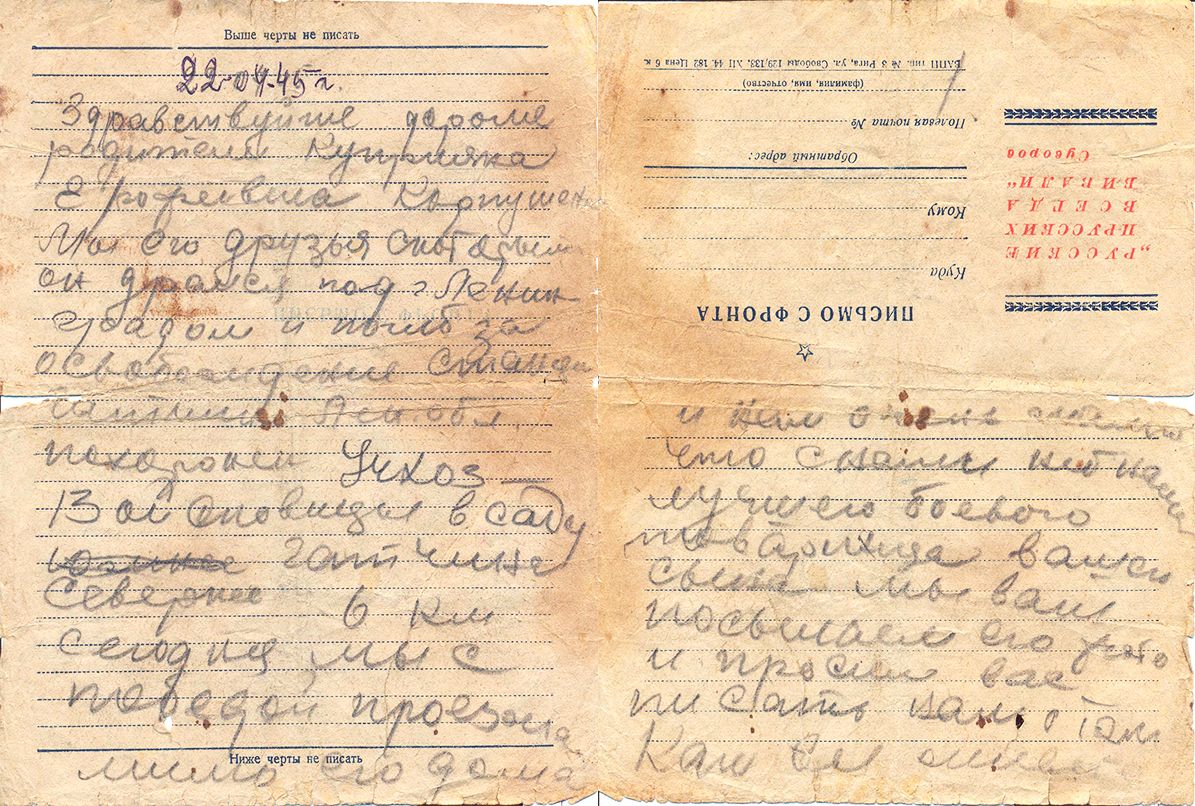 Выше черты не писать
22-04-45 г.
Здравствуйте дорогие
родители Куприяна
Ерофеевича
Мы его друзья
он дрался под г Ленин-
градом и погиб за
освобождение
Лен. обл.
похоронен Учхоз
в саду
Гатчина
Севернее 6 км
Сегодня мы с
победой
мимо его дома
Ниже черты не писать
ВАПП тип. № 3 Рига, ул. Свободы 129/133, XII 44 182 Цена 6 к.
(фамилия, имя, отчество)
Полевая почта №
Обратный адрес:
Кому
Куда
ПИСЬМО С ФРОНТА
„РУССКИЕ
ПРУССКИХ
ВСЕГДА
БИВАЛИ"
Суворов
и нам очень
что с нами нет
лучшего боевого
товарища вашего
сына мы вам
посылаем его фото
и просим вас
писать нам о том
как вы